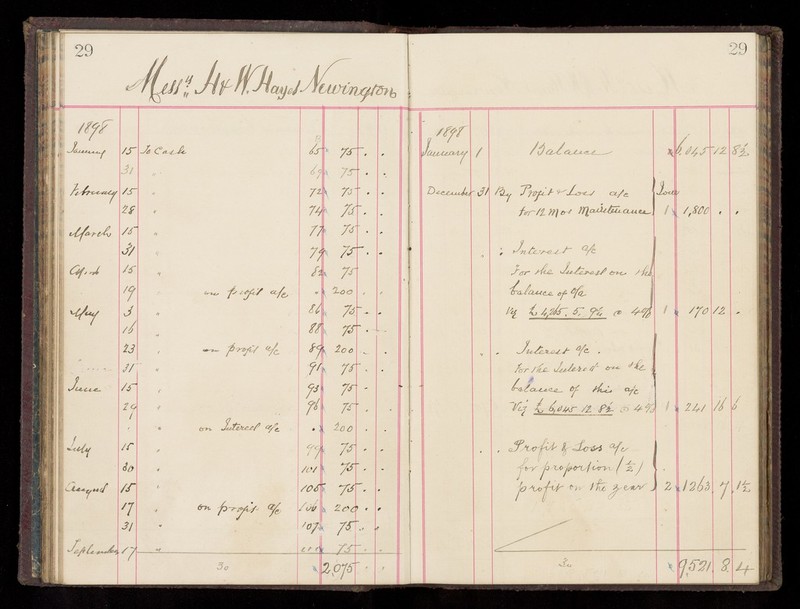 29
Mess.rs H & W. Hayes Newington
1898
January 15 To Cash 65 75 . .
31 " 69 75 . .
February 15 " 72 75 . .
28 " 74 75 . .
March 15 " 77 75 . .
31 " 79 75 . .
April 15 " 82 75
19 " on profit a/c " 200 . .
May 3 " 86 75 . .
16 " 88 75 . .
23 " on profit a/c 89 200 . .
31 " 91 75 . .
June 15 " 93 75 -
29 " 96 75 .
" " on Interest a/c " 200 . .
July 15 " 99 75 . .
30 " 101 75 . .
August 15 " 105 75 . .
17 " on profit a/c 106 200 . .
31 " 107 75 . .
September 17 " 75 . .
30 2,075 . .
29
1898
January 1 Balance 6,045 12 8½
December 31 By Profit & Loss a/c
for 12 Mos Maintenance 1 1,800 . .
" Interest a/c
For the Interest on the
balance of a/c
Viz £4,265. 5. 9½ @ 4% 1 170 12 .
" Interest a/c .
For the Interest on the
balance of this a/c
Viz £6,045 12 8½ @ 4% 1 241 16 6
" Profit & Loss a/c
for proportion (½)
profit on the year 2 1263 7 1½
30 9,521 8 4